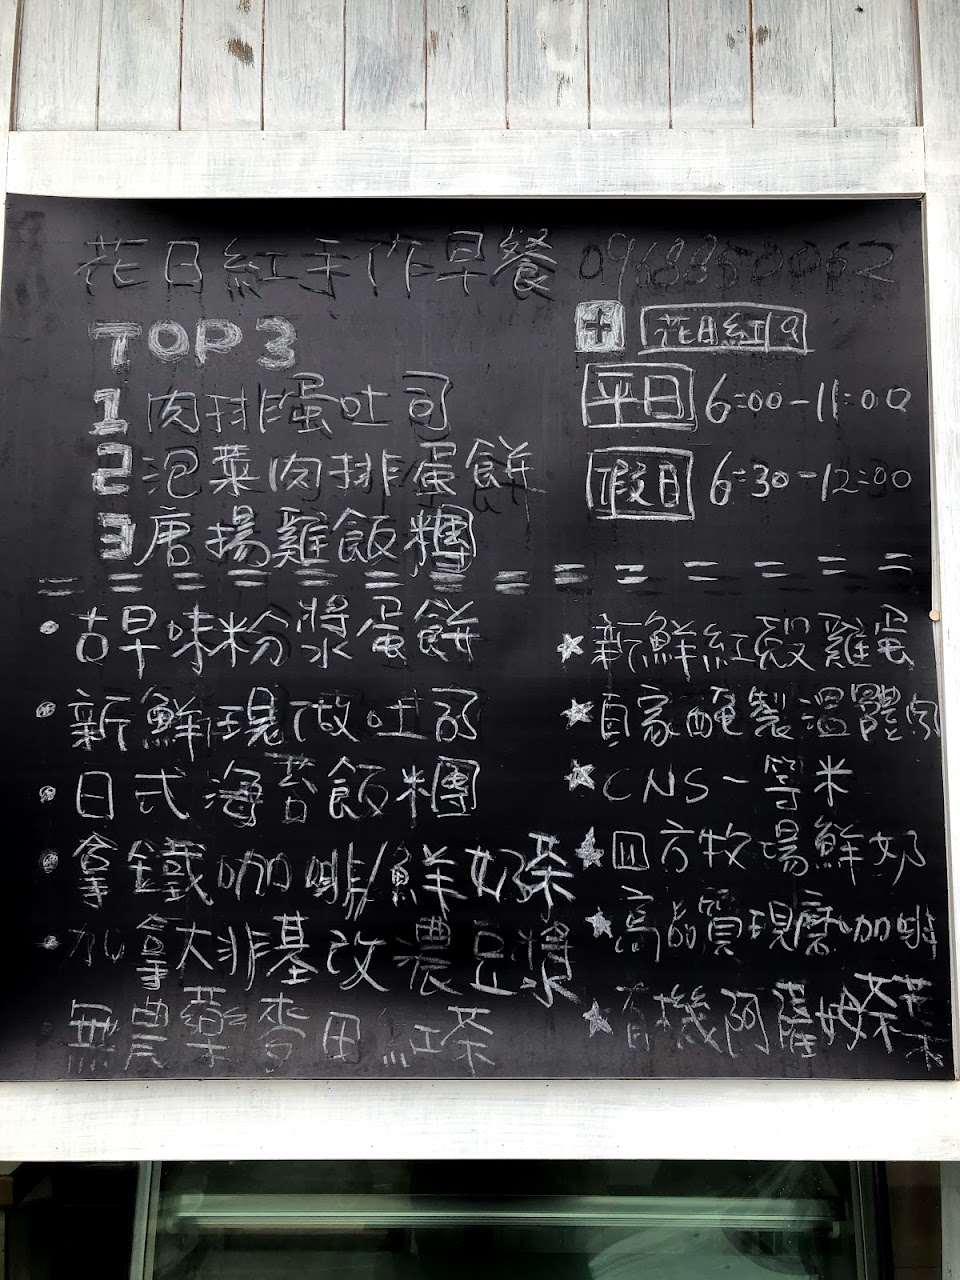 花日紅手作早餐
TOP 3
1 肉排蛋吐司
2 泡菜肉排蛋餅
3 唐揚雞飯糰
花日紅
平日 6:00-11:00
假日 6:30-12:00
古早味粉漿蛋餅
新鮮現做吐司
日式海苔飯糰
拿鐵咖啡/鮮奶茶
加拿大非基改濃豆漿
無農藥 田紅茶
新鮮紅殼雞蛋
自家醃製溫體肉
CNS一等米
四方牧場鮮奶
高品質現磨咖啡
有機阿薩姆茶葉